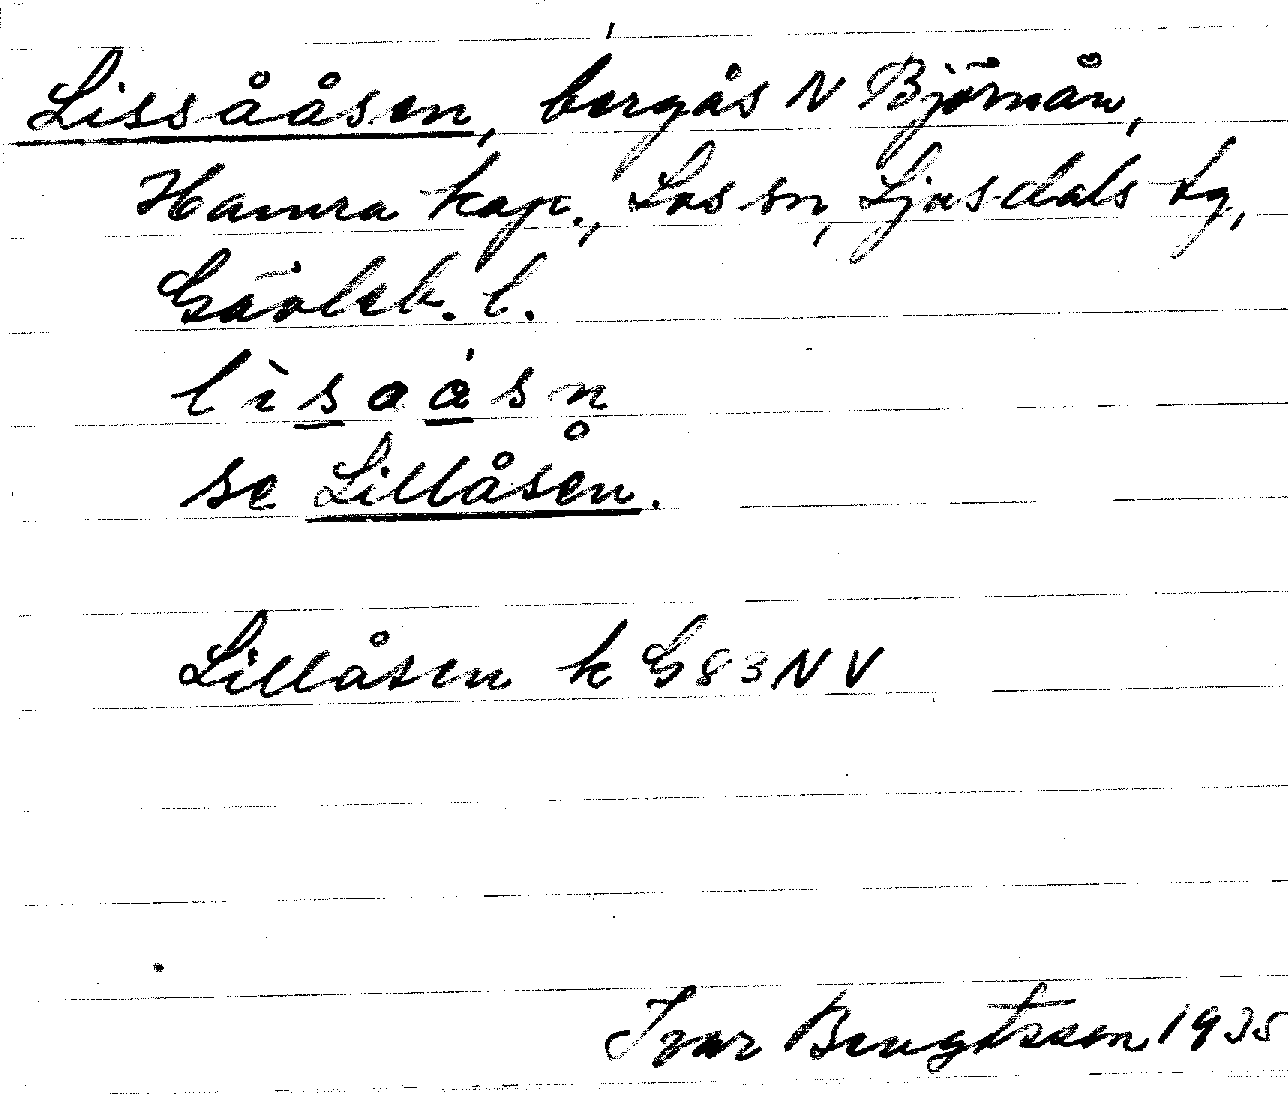 Lissååsen, bergås N Björnån,
Hamra kap., Los sn, Ljusdals tg,
Gävleb. l.
lìsaåsn̥
se Lillåsen.
Lillåsen k G83NV
Ivar Bengtsson 1935